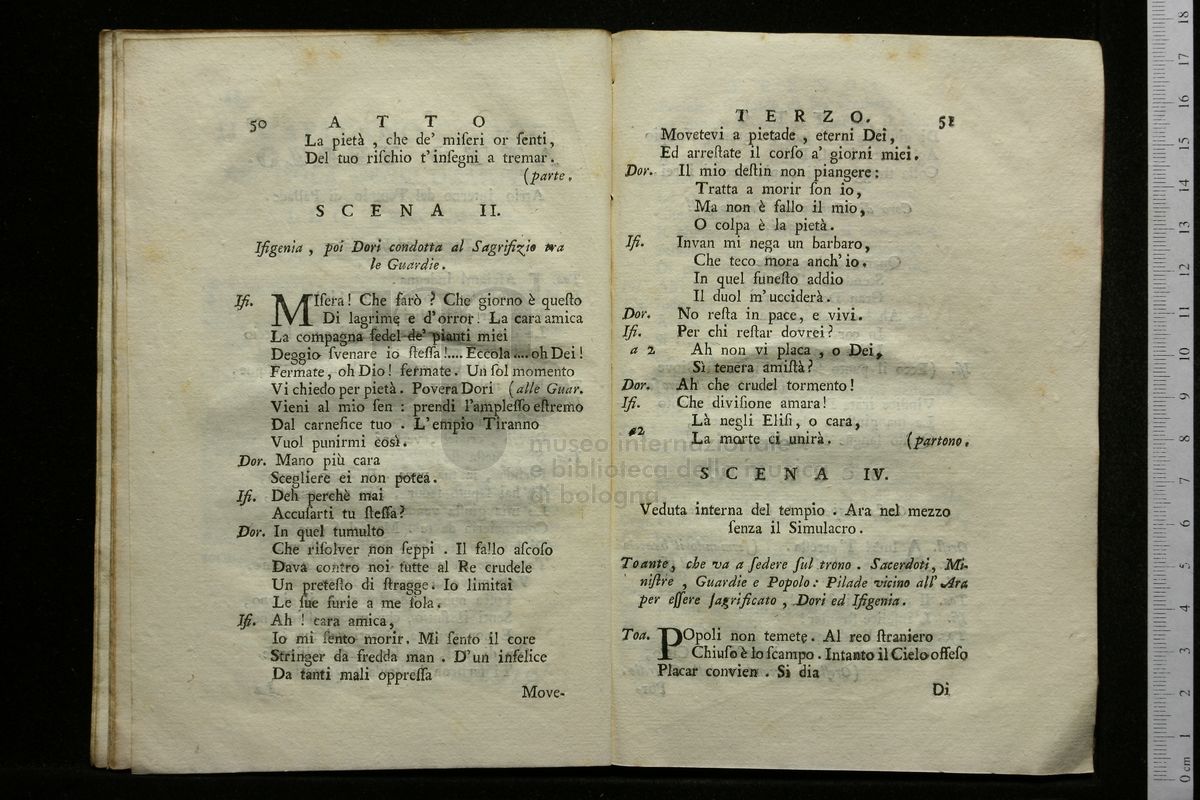 50 A T T O
La pietà , che de' miſeri or ſenti,
Del tuo riſchio t'inſegni a tremar.
(parte.
S C E N A II.
Ifigenia , poi Dori condotta al Sagrifizio tra
le Guardie.
Ifi. MIſera! Che farò ? Che giorno è queſto
Di lagrime e d'orror! La cara amica
La compagna fedel de' pianti miei
Deggio ſvenare io ſteſſa!.... Eccola .... oh Dei!
Fermate, oh Dio! fermate. Un ſol momento
Vi chiedo per pietà. Povera Dori (alle Guar.
Vieni al mio ſen : prendi l'ampleſſo eſtremo
Dal carnefice tuo . L'empio Tiranno
Vuol punirmi così.
Dor. Mano più cara
Scegliere ei non potea.
Ifi. Deh perchè mai
Accuſarti tu ſteſſa?
Dor. In quel tumulto
Che riſolver non ſeppi . Il fallo aſcoſo
Dava contro noi tutte al Re crudele
Un preteſto di ſtragge. Io limitai
Le ſue furie a me ſola.
Ifi. Ah ! cara amica,
Io mi ſento morir. Mi ſento il core
Stringer da fredda man . D'un infelice
Da tanti mali oppreſſa
Move-
T E R Z O. 51
Movetevi a pietade , eterni Dei,
Ed arreſtate il corſo a' giorni miei.
Dor. Il mio deſtin non piangere:
Tratta a morir ſon io,
Ma non è fallo il mio,
O colpa è la pietà.
Ifi. Invan mi nega un barbaro,
Che teco mora anch'io.
In quel funeſto addio
Il duol m'ucciderà.
Dor. No reſta in pace, e vivi.
Ifi. Per chi reſtar dovrei?
a 2 Ah non vi placa , o Dei,
Sì tenera amiſtà?
Dor. Ah che crudel tormento!
Ifi. Che diviſione amara!
Là negli Eliſi, o cara,
a2 La morte ci unirà. (partono.
S C E N A IV.
Veduta interna del tempio . Ara nel mezzo
ſenza il Simulacro.
Toante, che va a ſedere ſul trono . Sacerdoti, Mi-
niſtre , Guardie e Popolo: Pilade vicino all' Ara
per eſſere ſagrificato , Dori ed Ifigenia.
Toa. POpoli non temete. Al reo ſtraniero
Chiuſo è lo ſcampo. Intanto il Cielo offeſo
Placar convien . Si dia
Di
museo internazionale
e biblioteca della musica
di bologna
0 cm 1 2 3 4 5 6 7 8 9 10 11 12 13 14 15 16 17 18